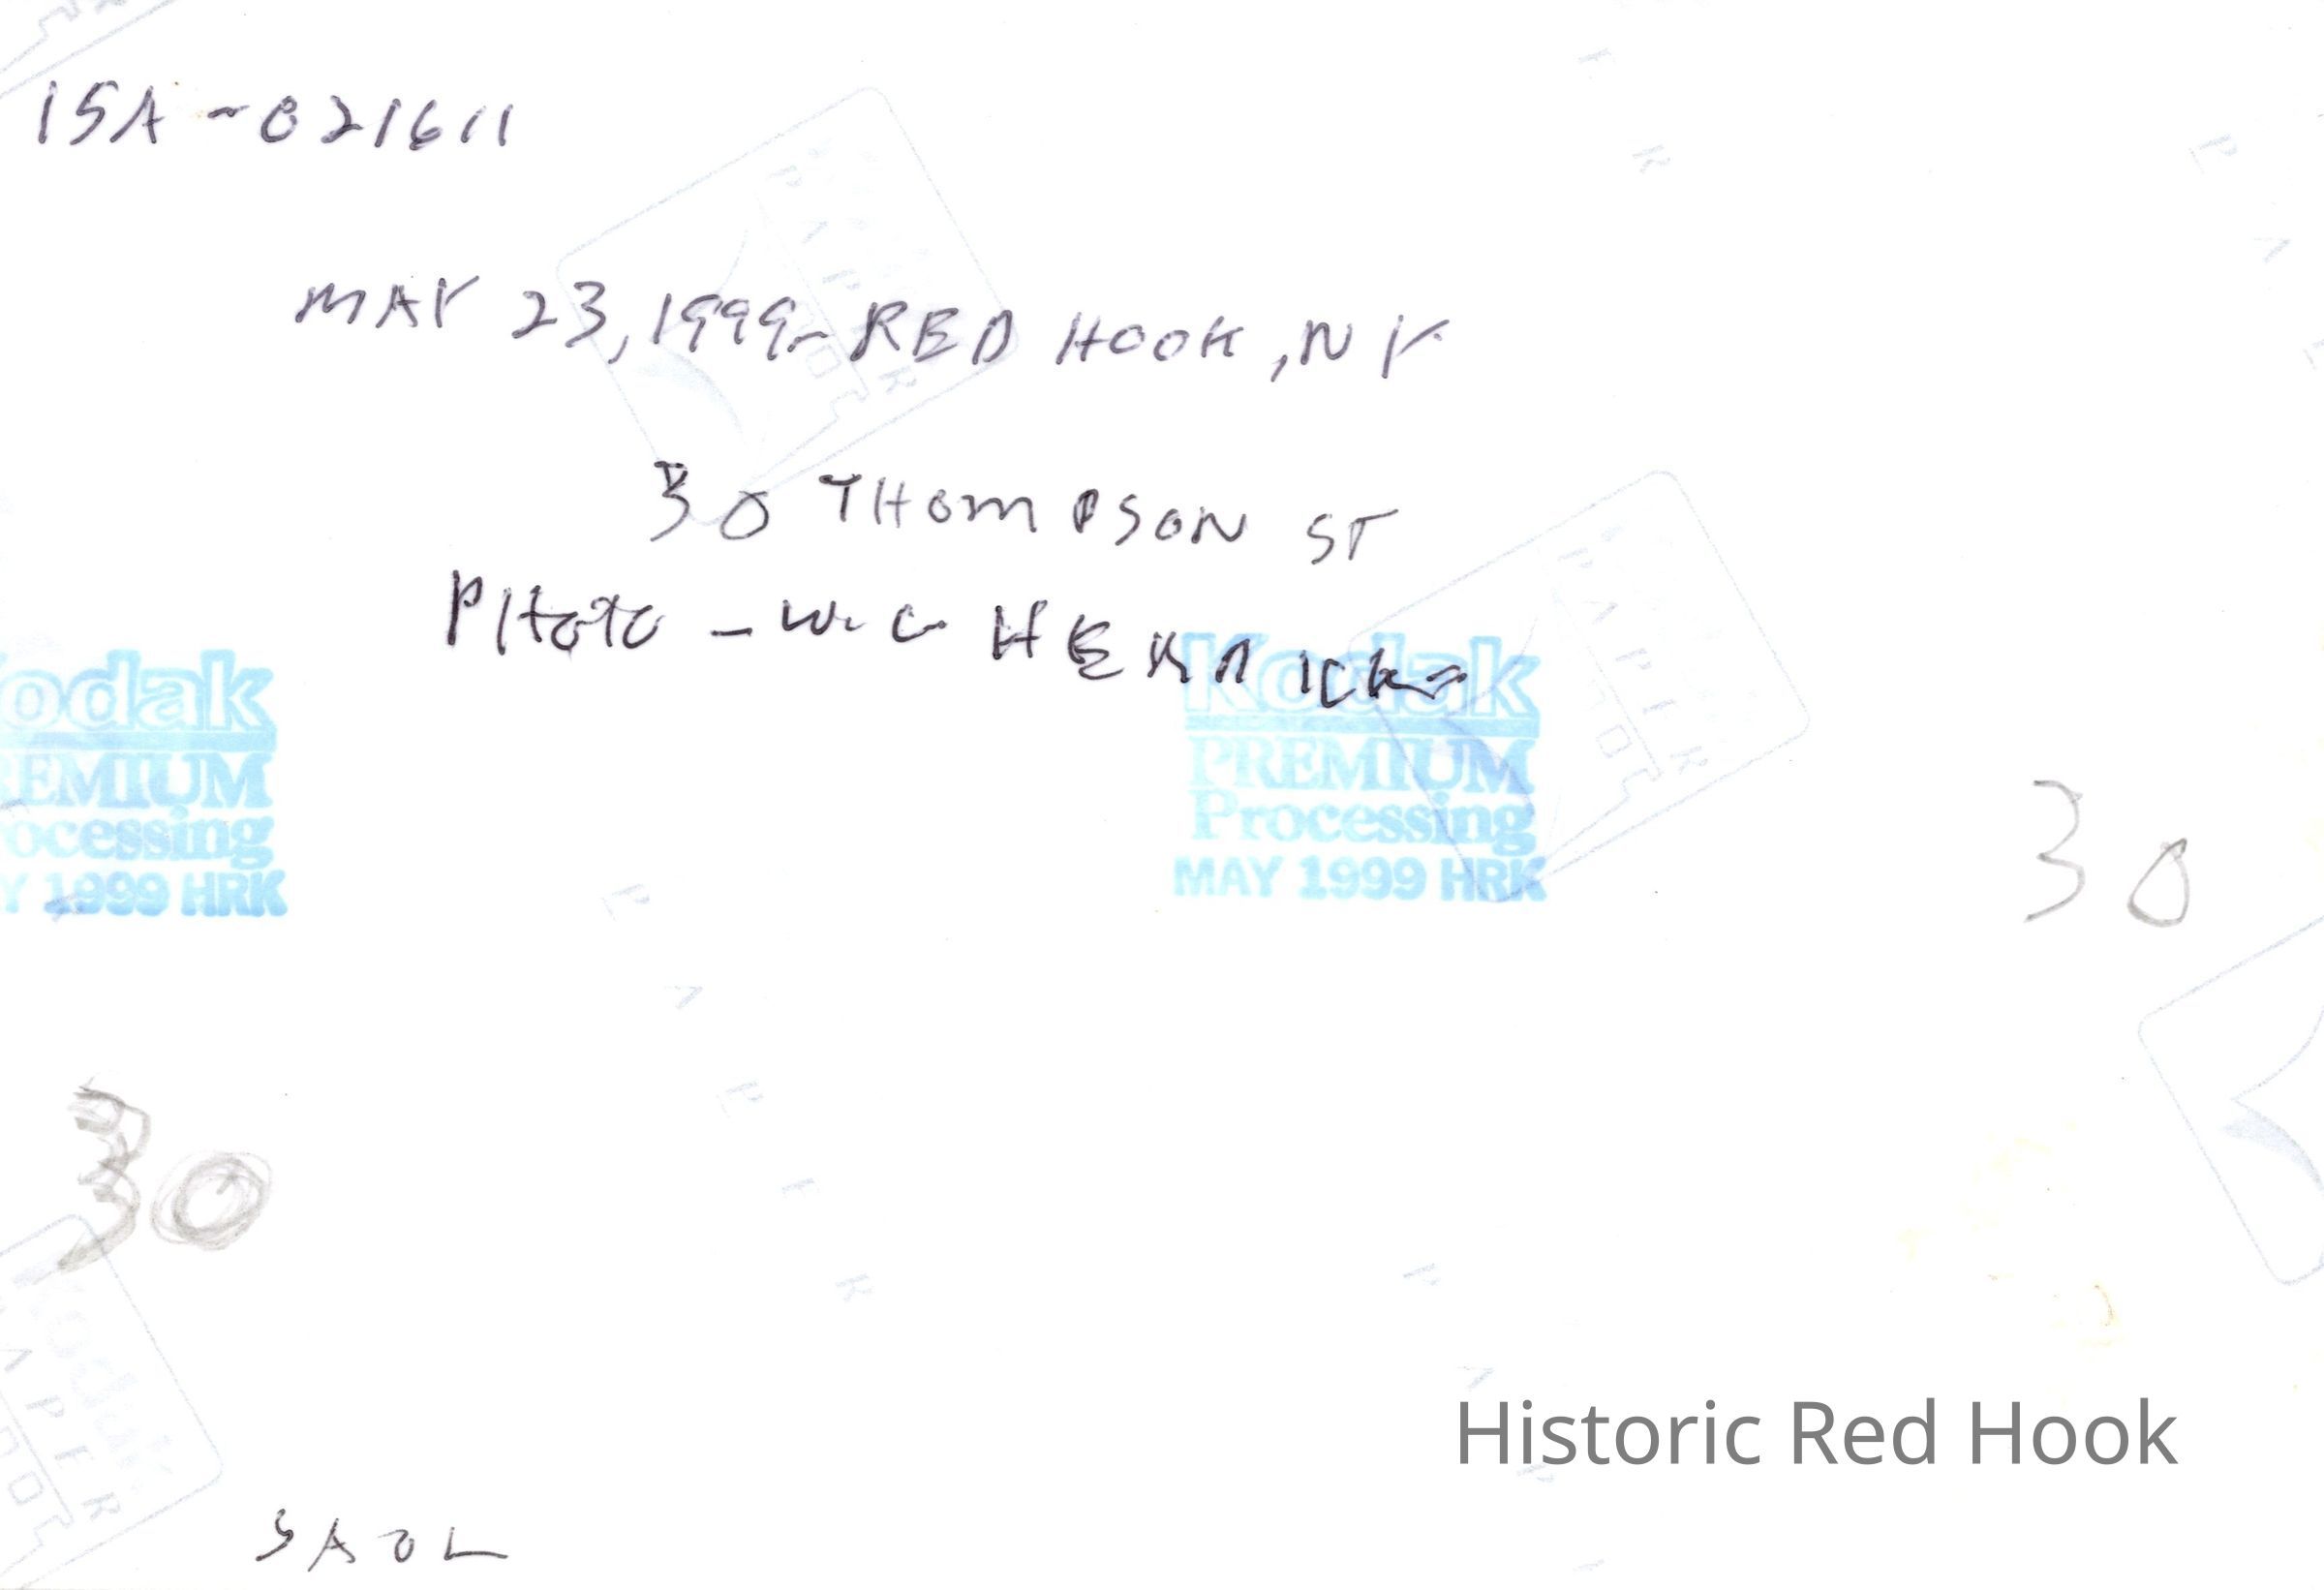 15A-021611
MAY 23, 1999-RED HOOK, NY
30 THOMPSON ST
PHOTO - W.C. HENDRICKS
Kodak
PREMIUM
Processing
MAY 1999 HRK
odak
REMIUM
ocessing
Y 1999 HRK
30
30
Historic Red Hook